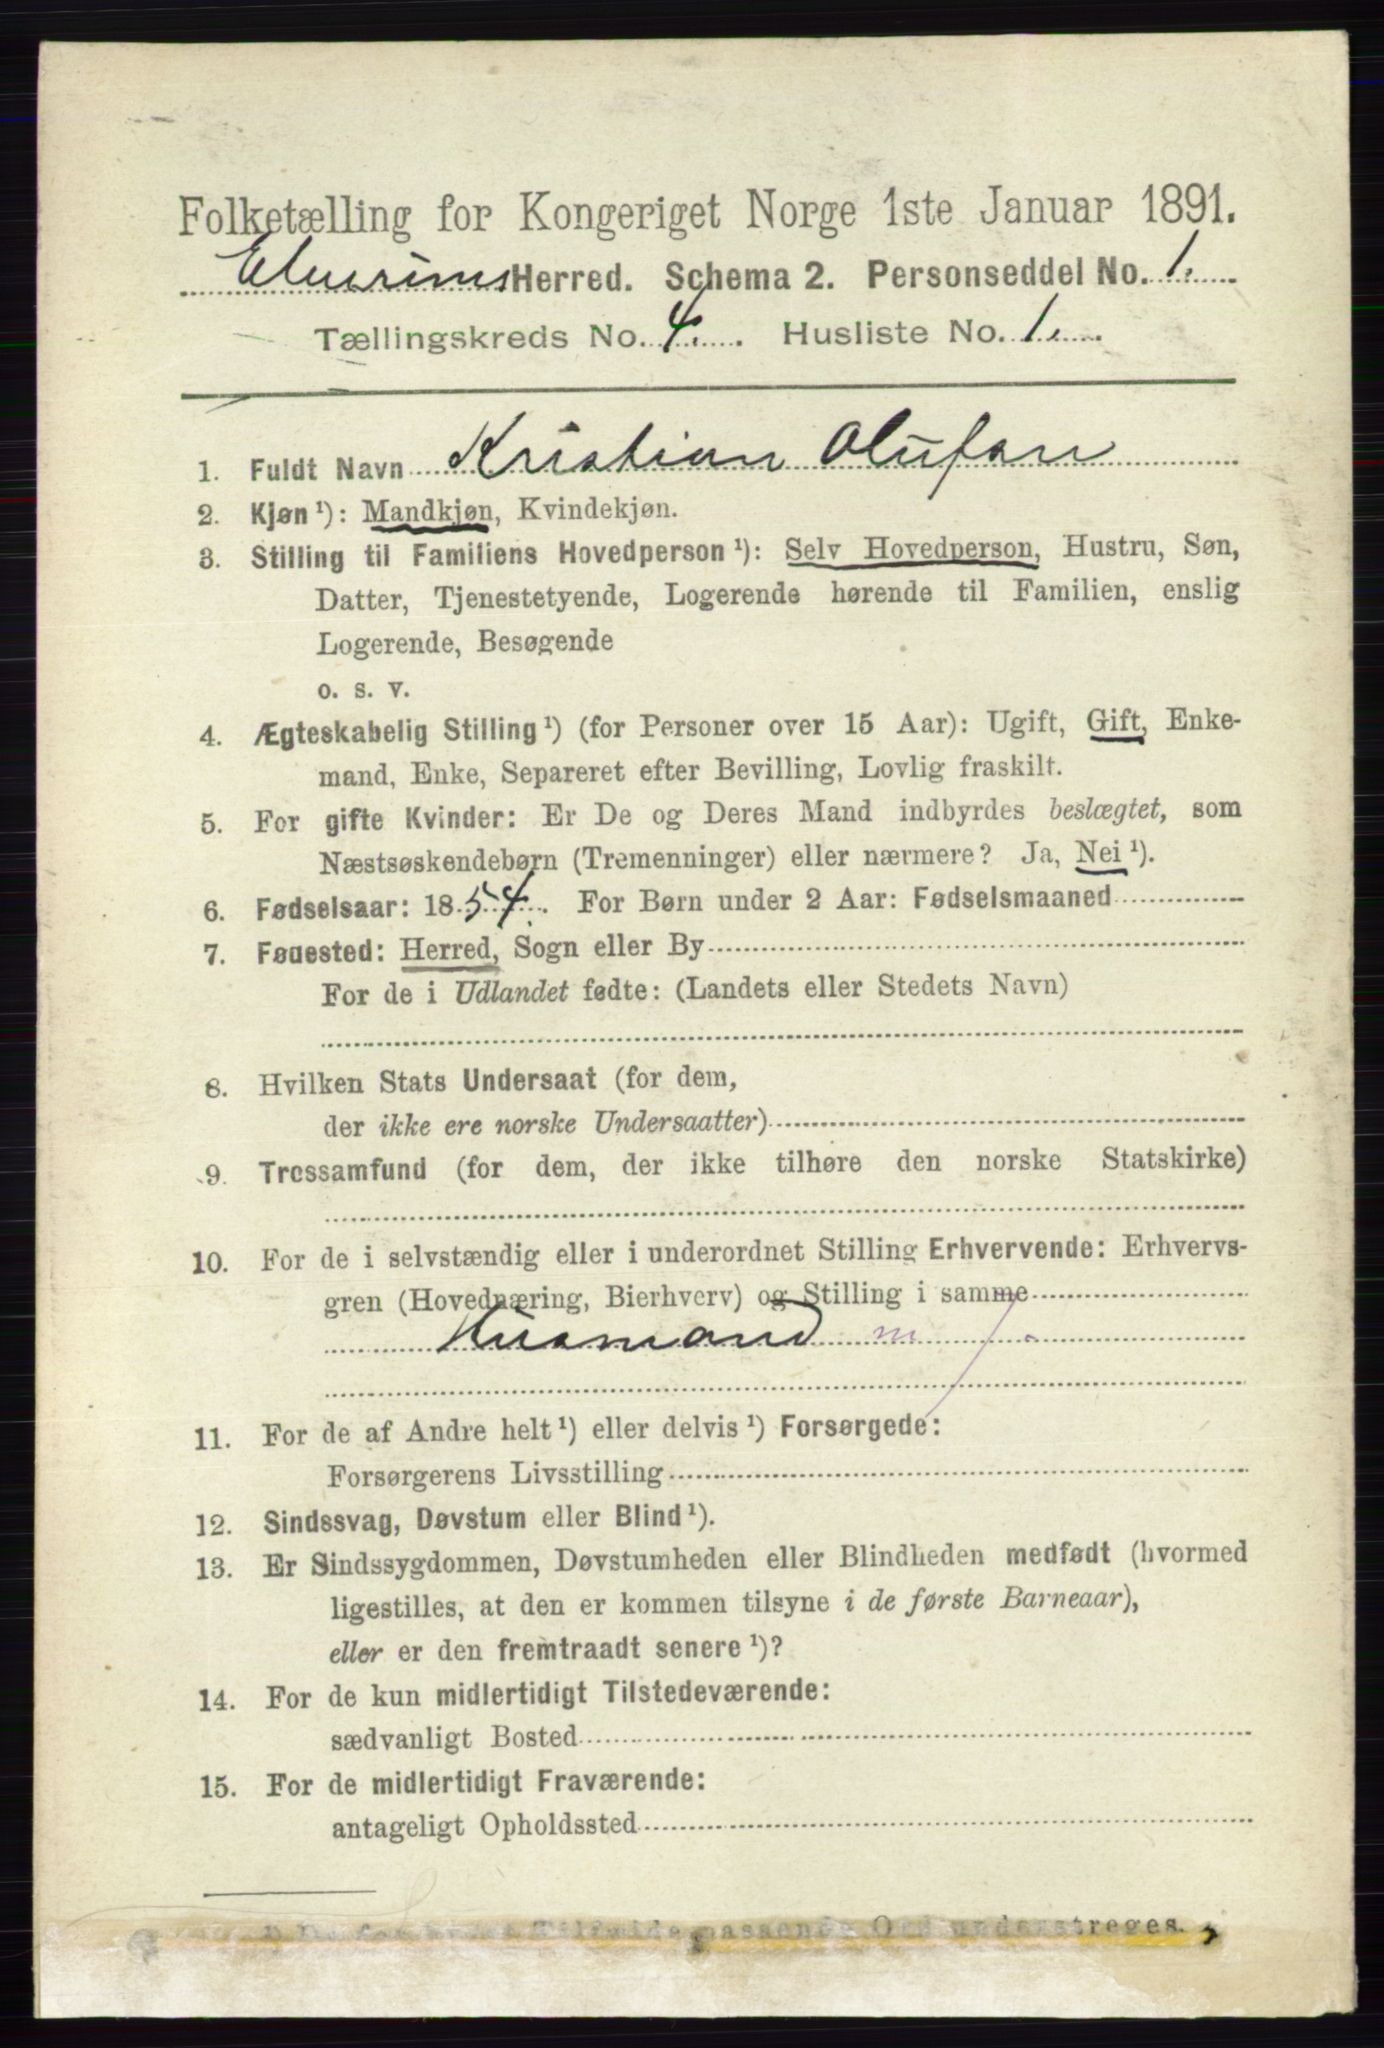 Folketælling for Kongeriget Norge 1ste Januar 1891.
Elverums Herred. Schema 2. Personseddel No. 1.
Tællingskreds No. 4. Husliste No. 1.
1. Fuldt Navn Kristian Olufsen
2. Kjøn ¹): Mandkjøn, Kvindekjøn.
3. Stilling til Familiens Hovedperson ¹): Selv Hovedperson, Hustru, Søn,
Datter, Tjenestetyende, Logerende hørende til Familien, enslig
Logerende, Besøgende
o. s. v.
4. Ægteskabelig Stilling ¹) (for Personer over 15 Aar): Ugift, Gift, Enke-
mand, Enke, Separeret efter Bevilling, Lovlig fraskilt.
5. For gifte Kvinder: Er De og Deres Mand indbyrdes beslægtet, som
Næstsøskendebørn (Tremenninger) eller nærmere? Ja, Nei ¹).
6. Fødselsaar: 1854. For Børn under 2 Aar: Fødselsmaaned
7. Fødested: Herred, Sogn eller By
For de i Udlandet fødte: (Landets eller Stedets Navn)
8. Hvilken Stats Undersaat (for dem,
der ikke ere norske Undersaatter)
9. Trossamfund (for dem, der ikke tilhøre den norske Statskirke)
10. For de i selvstændig eller i underordnet Stilling Erhvervende: Erhvervs-
gren (Hovednæring, Bierhverv) og Stilling i samme
Husmand m/
11. For de af Andre helt ¹) eller delvis ¹) Forsørgede:
Forsørgerens Livsstilling
12. Sindssvag, Døvstum eller Blind ¹).
13. Er Sindssygdommen, Døvstumheden eller Blindheden medfødt (hvormed
ligestilles, at den er kommen tilsyne i de første Barneaar),
eller er den fremtraadt senere ¹)?
14. For de kun midlertidigt Tilstedeværende:
sædvanligt Bosted
15. For de midlertidigt Fraværende:
antageligt Opholdssted
¹) De for hvert Tilfælde passende Ord understreges.